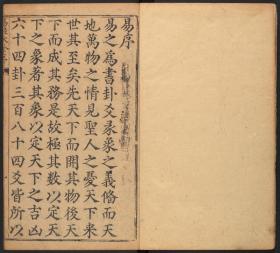 易序
易之為書卦爻彖象之義備而天
地萬物之情見聖人之憂天下來
世其至矣先天下而開其物後天
下而成其務是故極其數以定天
下之象著其象以定天下之吉凶
六十四卦三百八十四爻皆所以